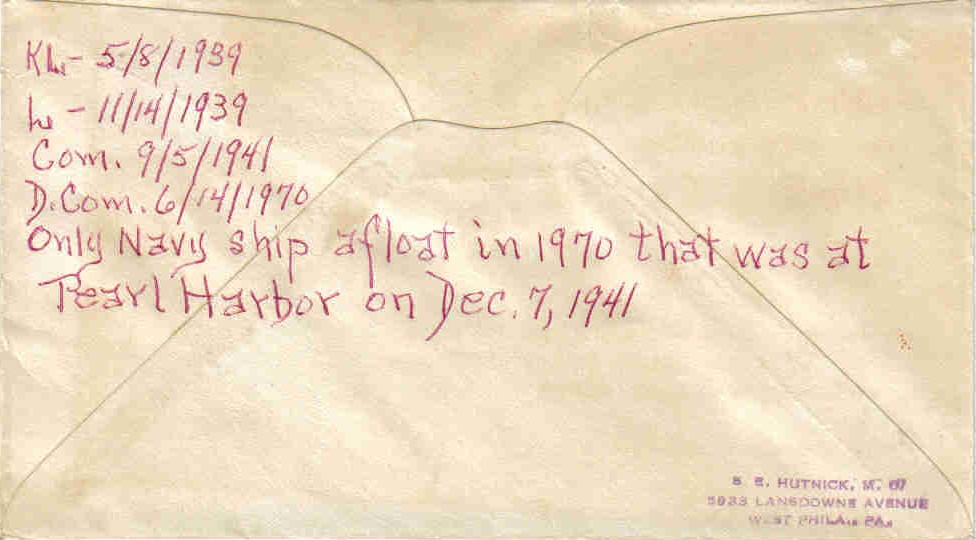 KL - 5/8/1939
L - 11/14/1939
Com. 9/5/1941
D.Com. 6/14/1970
Only Navy ship afloat in 1970 that was at
Pearl Harbor on Dec. 7, 1941
S. E. HUTNICK, M. 67
5933 LANSDOWNE AVENUE
WEST PHILA. PA.